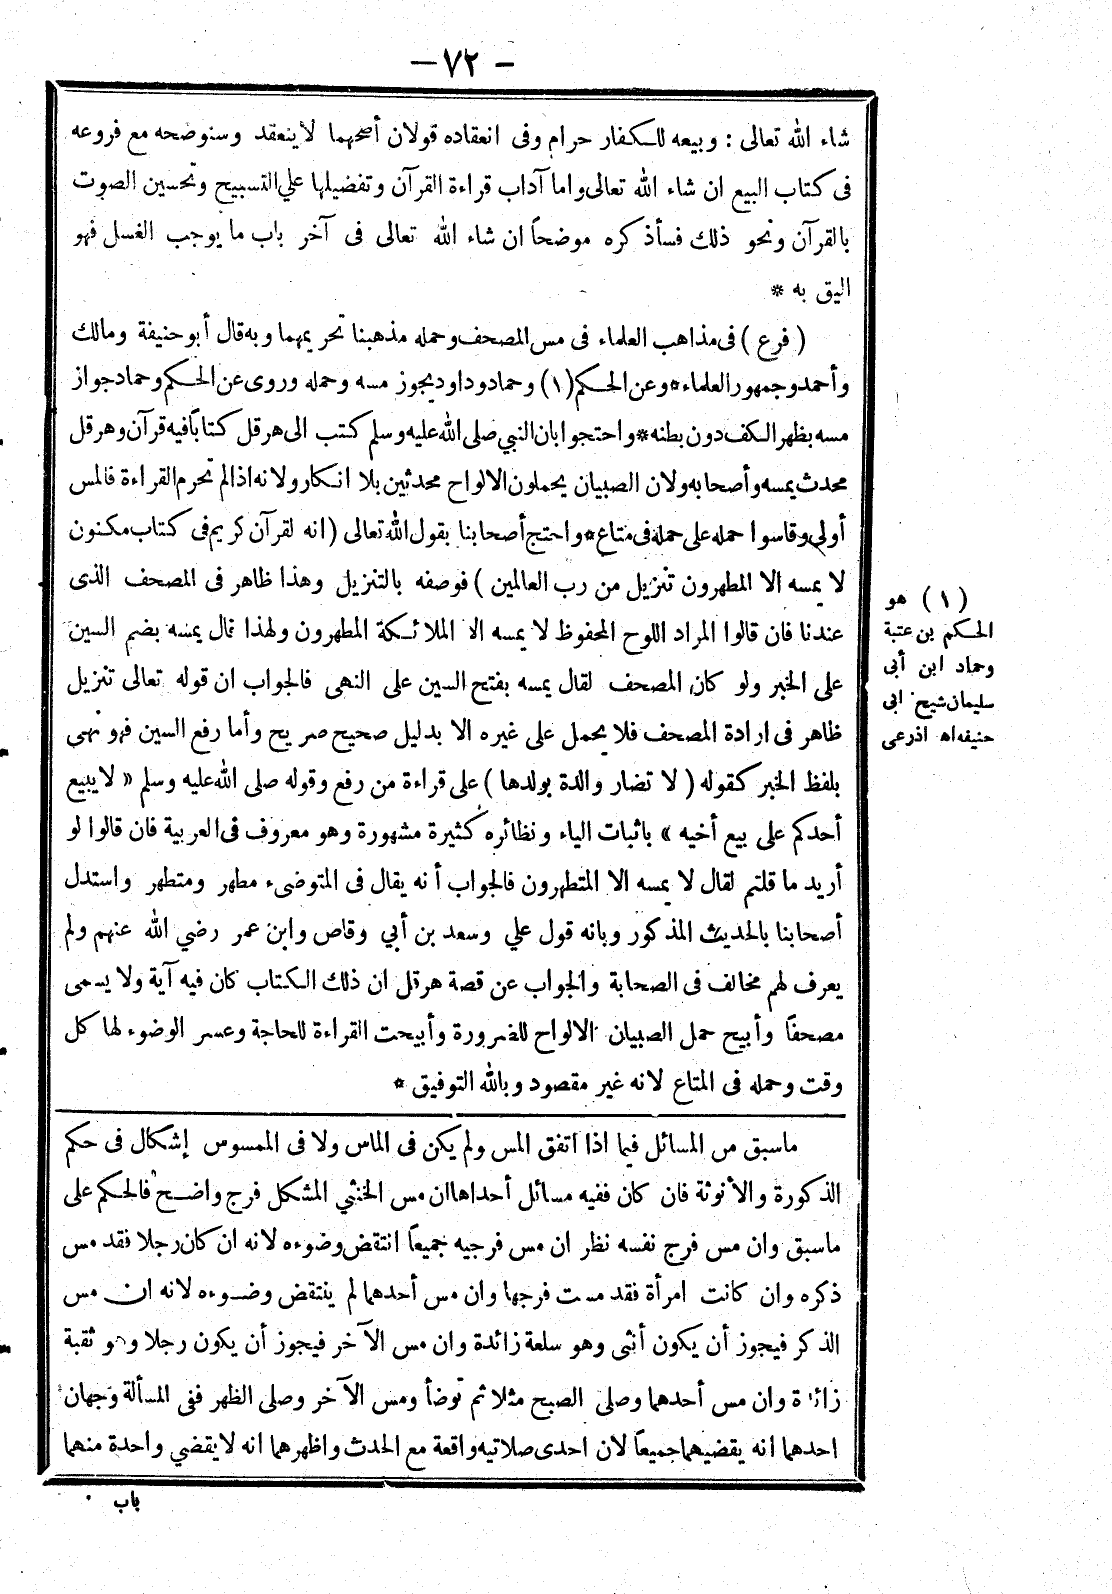 — ٧٢ —
شاء الله تعالى : وبيعه للكفار حرام وفى انعقاده قولان أصحهما لاينعقد وسنوضحه مع فروعه
فى كتاب البيع ان شاء الله تعالى واما آداب قراءة القرآن وتفضيلها علي التسبيح وتحسين الصوت
بالقرآن ونحو ذلك فسأذكره موضحاً ان شاء الله تعالى فى آخر باب ما يوجب الغسل فهو
اليق به *
( فرع ) فى مذاهب العلماء فى مس المصحف وحمله مذهبنا تحريمهما وبه قال أبو حنيفة ومالك
وأحمد وجمهور العلماء * وعن الحكم (١) وحماد وداود يجوز مسه وحمله وروى عن الحكم وحماد جواز
مسه بظهر الكف دون بطنه * واحتجوا بان النبي صلى الله عليه وسلم كتب الى هرقل كتابا فيه قرآن وهرقل
محدث يمسه وأصحابه ولان الصبيان يحملون الالواح محدثين بلا انكار ولانه اذا لم تحرم القراءة فالمس
أولى وقاسوا حمله على حمله فى متاع * واحتج أصحابنا بقول الله تعالى (انه لقرآن كريم فى كتاب مكنون
لا يمسه الا المطهرون تنزيل من رب العالمين ) فوصفه بالتنزيل وهذا ظاهر فى المصحف الذى
عندنا فان قالوا المراد اللوح المحفوظ لا يمسه الا الملائكة المطهرون ولهذا قال يمسه بضم السين
على الخبر ولو كان المصحف لقال يمسه بفتح السين على النهى فالجواب ان قوله تعالى تنزيل
ظاهر فى ارادة المصحف فلا يحمل على غيره الا بدليل صحيح صريح وأما رفع السين فهو نهى
بلفظ الخبر كقوله ( لا تضار والدة بولدها ) على قراءة من رفع وقوله صلى الله عليه وسلم « لا يبيع
أحدكم على بيع أخيه » باثبات الياء ونظائره كثيرة مشهورة وهو معروف فى العربية فان قالوا لو
أريد ما قلتم لقال لا يمسه الا المتطهرون فالجواب أنه يقال فى المتوضىء مطهر ومتطهر واستدل
أصحابنا بالحديث المذكور وبانه قول علي وسعد بن أبي وقاص وابن عمر رضي الله عنهم ولم
يعرف لهم مخالف فى الصحابة والجواب عن قصة هرقل ان ذلك الكتاب كان فيه آية ولا يسمى
مصحفاً وأبيح حمل الصبيان الالواح للضرورة وأبيحت القراءة للحاجة وعسر الوضوء لها كل
وقت وحمله فى المتاع لانه غير مقصود وبالله التوفيق *
(١) هو
الحكم بن عتبة
وحماد ابن أبى
سليمان شيخ ابى
حنيفه اه اذرعى
ماسبق من المسائل فيما اذا اتفق المس ولم يكن فى الماس ولا فى الممسوس إشكال فى حكم
الذكورة والأنوثة فان كان ففيه مسائل أحداها ان مس الخنثي المشكل فرج واضح فالحكم على
ماسبق وان مس فرج نفسه نظر ان مس فرجيه جميعاً انتقض وضوءه لانه ان كان رجلا فقد مس
ذكره وان كانت امرأة فقد مست فرجها وان مس أحدهما لم ينتقض وضوءه لانه ان مس
الذكر فيجوز أن يكون أنثى وهو سلعة زائدة وان مس الآخر فيجوز أن يكون رجلا وهو ثقبة
زائدة وان مس أحدهما وصلى الصبح مثلا ثم توضأ ومس الآخر وصلى الظهر ففى المسألة وجهان
احدهما انه يقضيهما جميعاً لان احدى صلاتيه واقعة مع الحدث واظهرهما انه لا يقضي واحدة منهما
باب